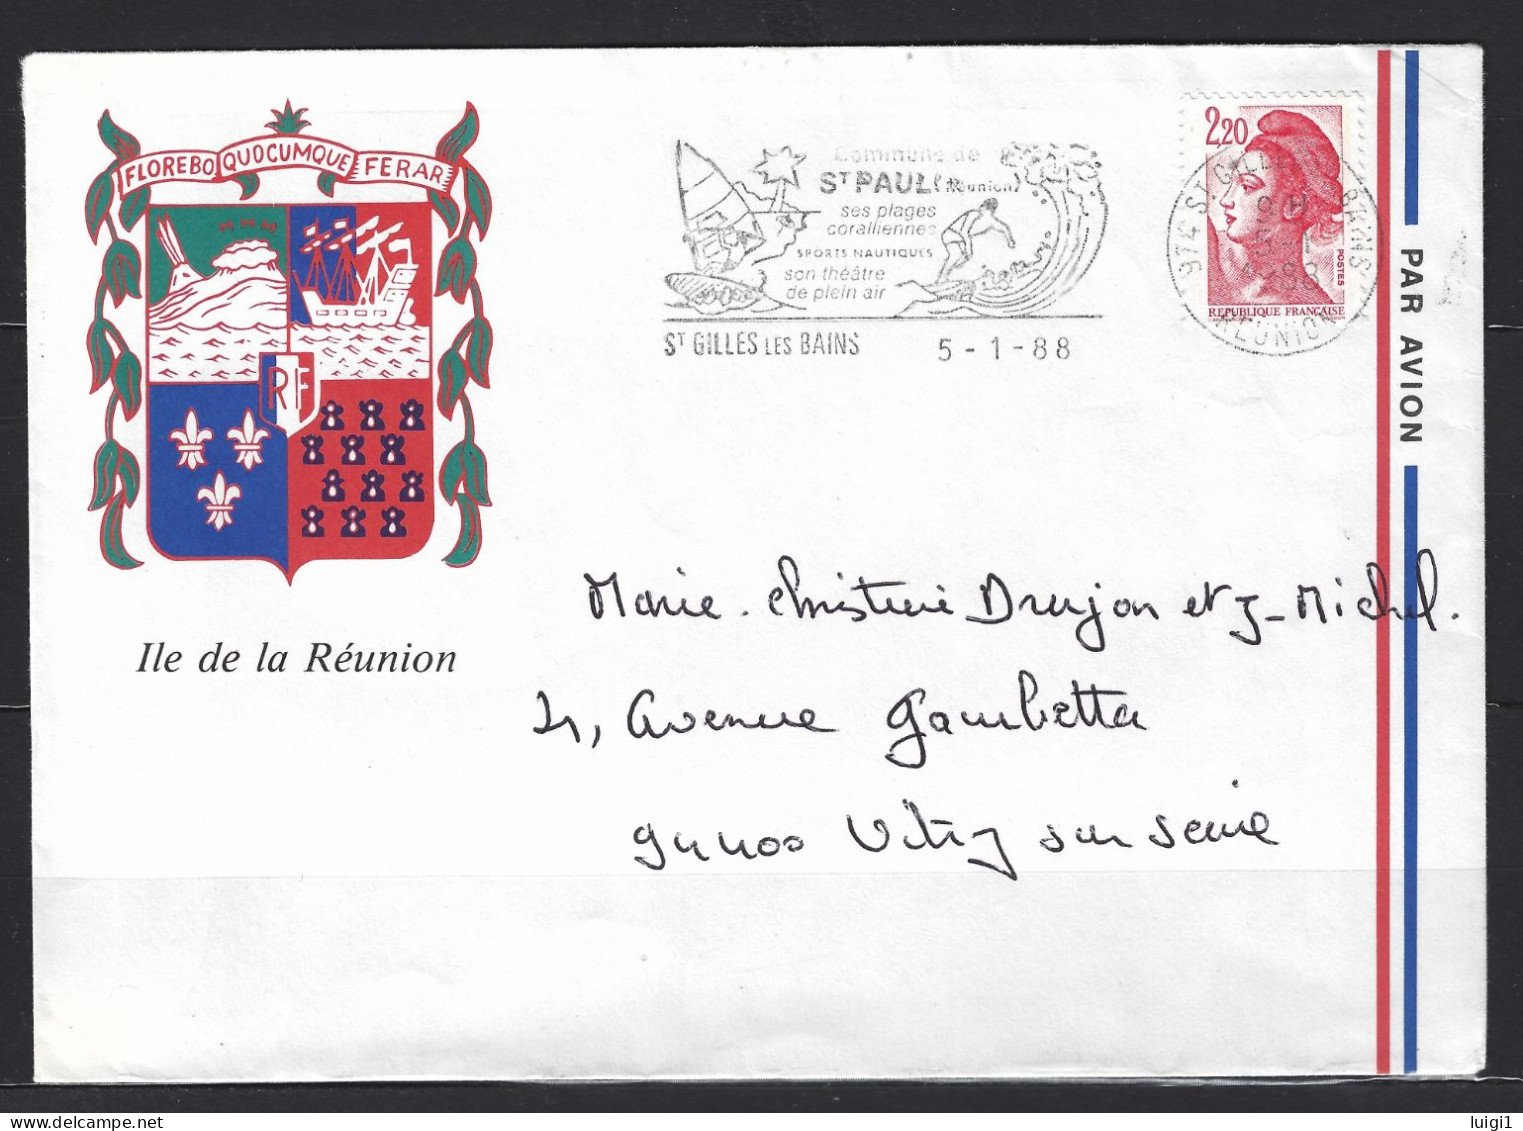 FLOREBO QUOCUMQUE FERAR
RF
Ile de la Réunion
Commune de
ST PAUL (Réunion)
ses plages
coralliennes
SPORTS NAUTIQUES
son théâtre
de plein air
ST GILLES LES BAINS 5-1-88
2,20
POSTES
REPUBLIQUE FRANÇAISE
974 ST GILLES BAINS
9 H
5-1
1988
REUNION
PAR AVION
Marie-Christine Drujon et J-Michel.
21, Avenue Gambetta
94400 Vitry sur Seine
luigi1